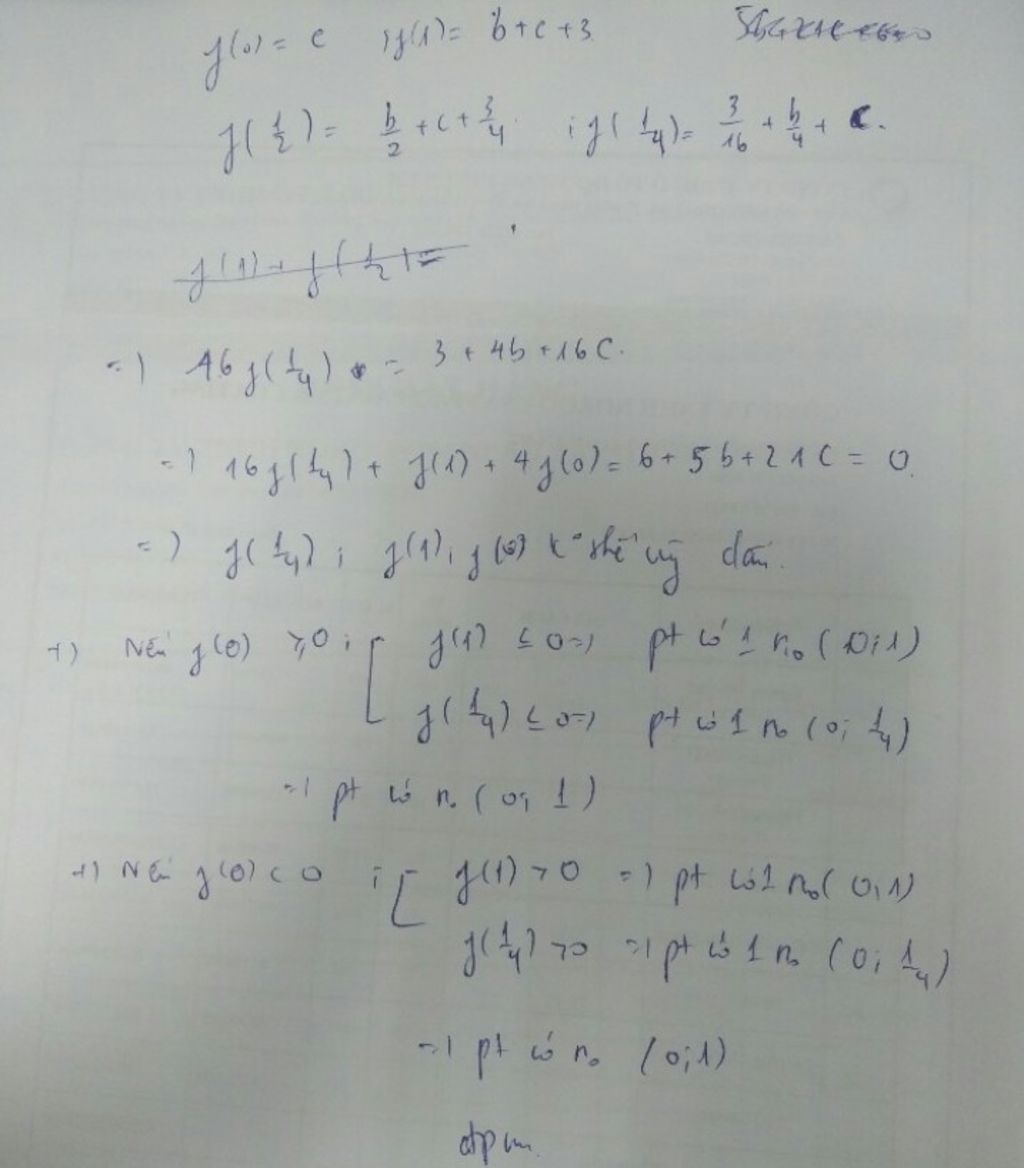 f(0) = c ; f(1) = b + c + 3
f(1/2) = b/2 + c + 3/4 ; f(1/4) = 3/16 + b/4 + c.
f(1) + f(1/2) =
=) 16 f(1/4) = 3 + 4b + 16C.
=) 16 f(1/4) + f(1) + 4 f(0) = 6 + 5b + 21C = 0.
=) f(1/4) ; f(1) ; f(0) k° thể cùg dấu.
+) Nếu f(0) ≥ 0 ; [ f(1) ≤ 0 =) pt có 1 n₀ (0;1)
f(1/4) ≤ 0 =) pt có 1 n₀ (0; 1/4)
=) pt có n₀ (0; 1)
+) Nếu f(0) < 0 ; [ f(1) > 0 =) pt có 1 n₀ (0;1)
f(1/4) > 0 =) pt có 1 n₀ (0; 1/4)
=) pt có n₀ (0;1)
đpcm.